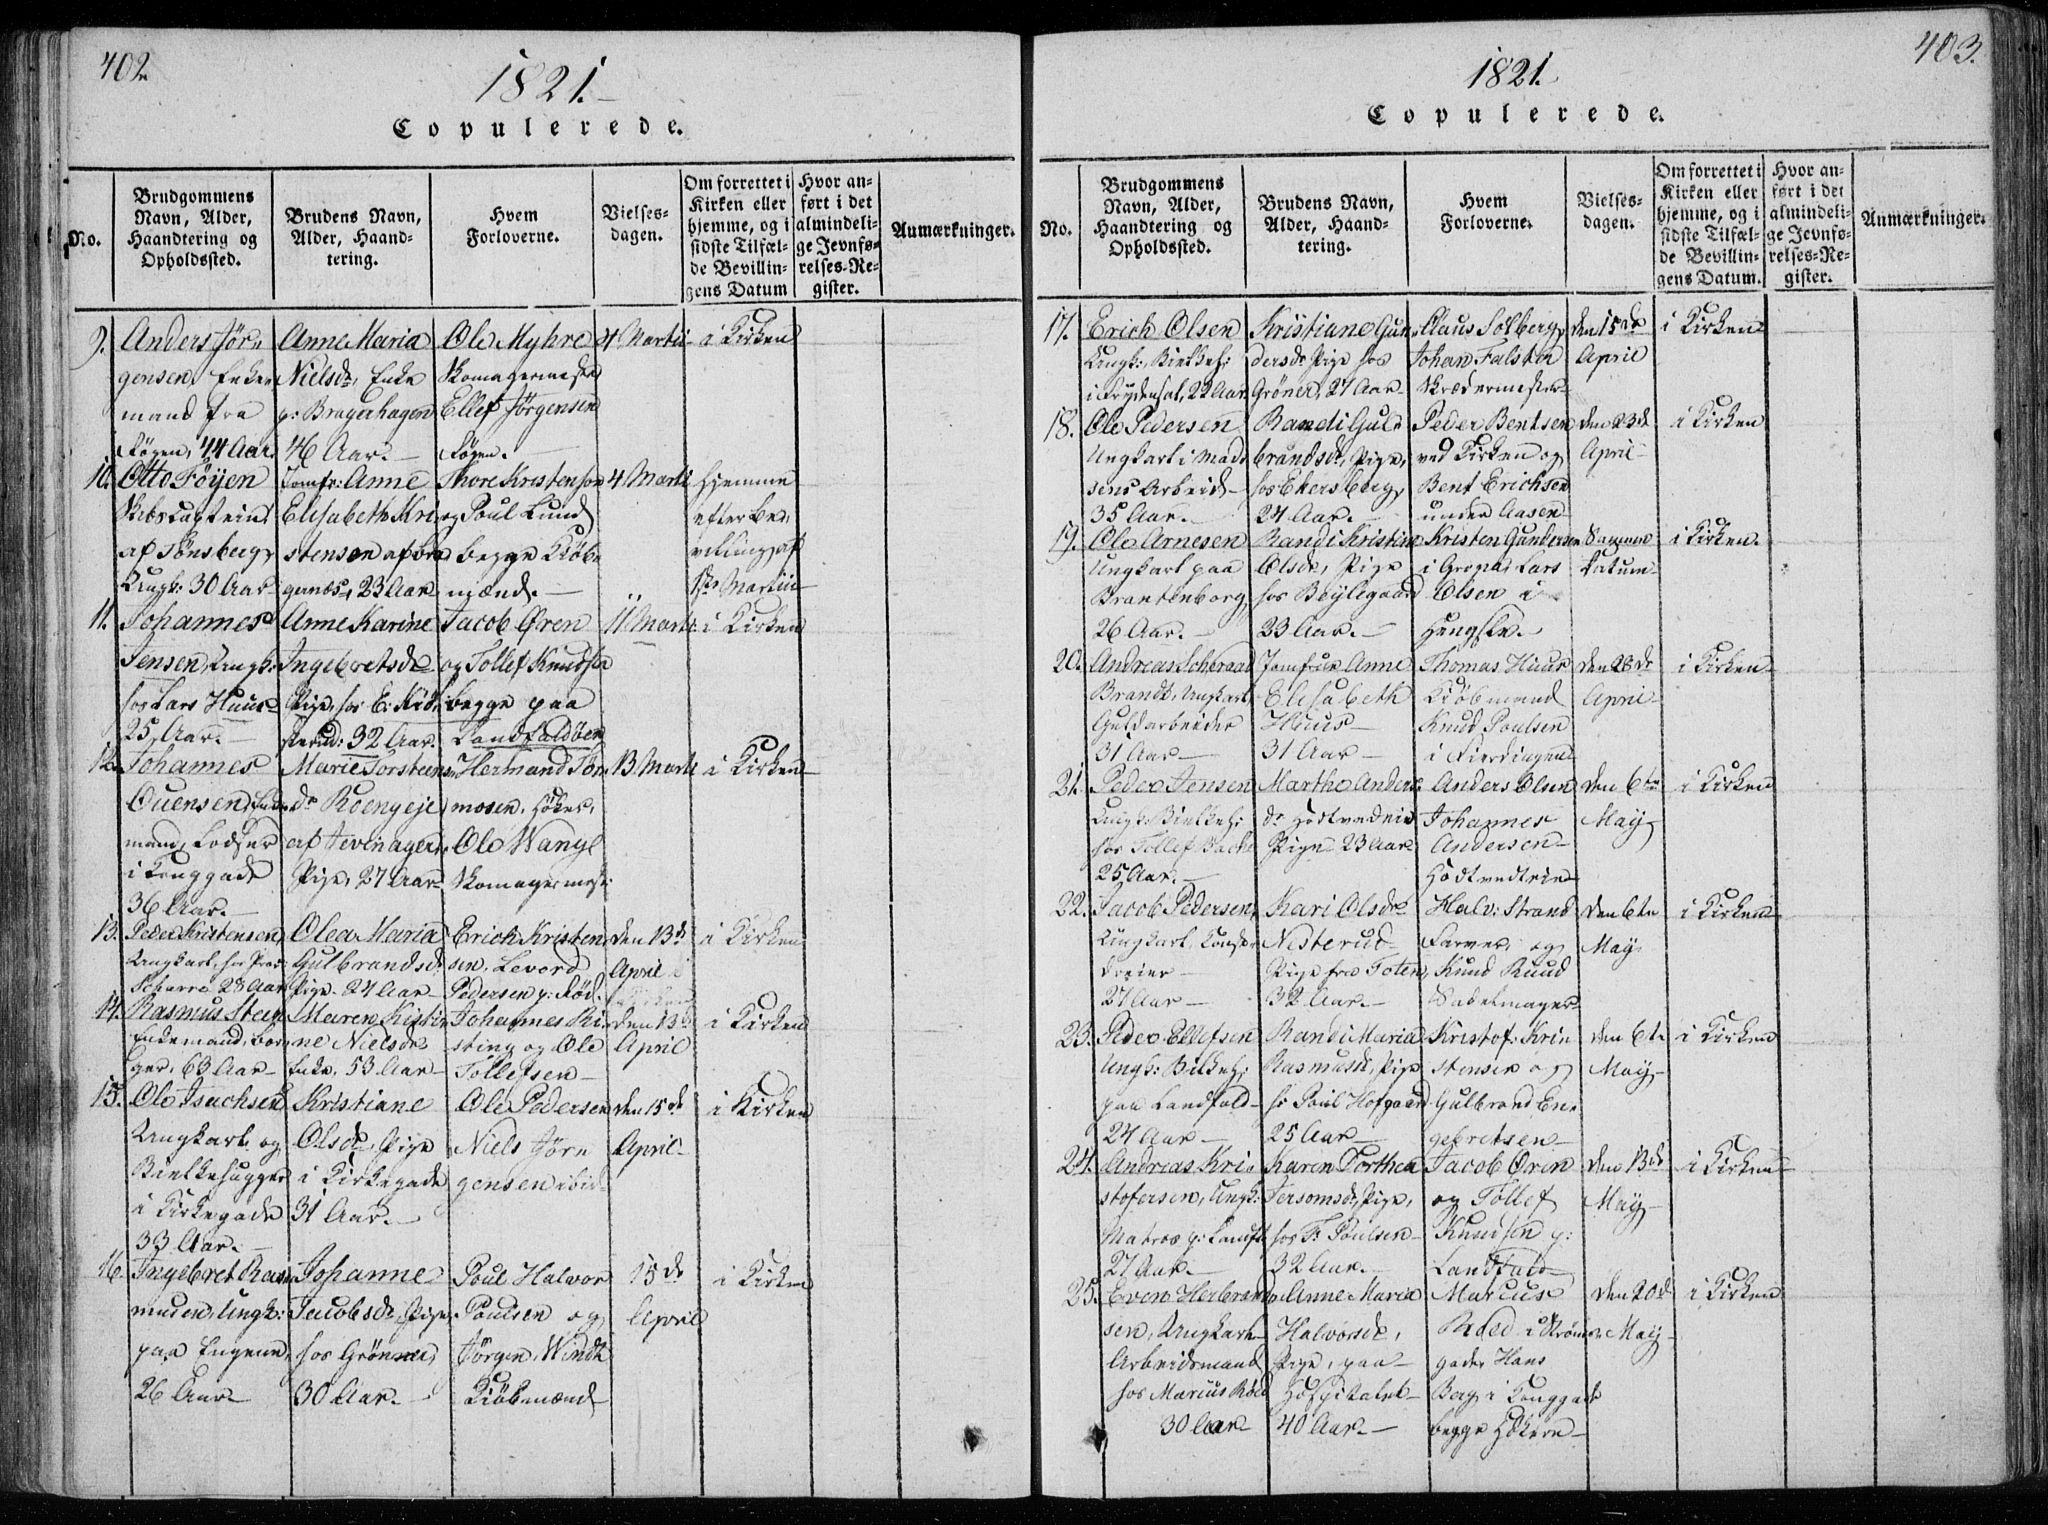 402.
1821.
Copulerede.
No.
Brudgommens Navn, Alder, Haandtering og Opholdssted.
Brudens Navn, Alder, Haandtering.
Hvem Forloverne.
Vielsesdagen.
Om forrettet i Kirken eller hjemme, og i sidste Tilfælde Bevillingens Datum
Hvor anført i det almindelige Jevnførelses-Register.
Anmærkninger.
9.
Anders Jör-
gensen, Enke-
mand fra
Röyen, 44 Aar.
Anne Maria
Nielsdr, Enke
p: Bragerhagen
46 Aar.
Ole Myhre
Skomagermester
Ellef Jörgensen
Röyen.
4 Martii
i Kirken
10.
Otto Föyen
Skibscaptein
af Tönsberg,
Ungk: 30 Aar
Jomfr: Anne
Elisabeth Kri-
stensen
23 Aar
Thore Kristensen
og Poul Lund
begge Kiöb-
mænd.
4 Martii
hjemme
efter Be-
villing af
Martii
11.
Johannes
Jensen, Ungk:
hos Lars Huus
25 Aar.
Anne Karine
Ingebretsdr
Pige, hos E. Kiö-
sterud: 32 Aar.
Jacob Ören
og Tollef Knudsen
begge paa
Landfaldöen
11 Martii
i Kirken
12.
Johannes
Ouensen, Enke-
mand, Lodser
i Konggade
36 Aar.
Marie Torsteens-
dr Roengeje
af Jevnager,
Pige, 27 Aar
Hermand Tör-
mosen, Höker,
Ole Wange
Skomagermest:
13 Martii
i Kirken
13.
Peder Kristensen,
Ungkarl, hos
Scharre 28 Aar
Olea Maria
Gulbrandsdr
Pige, 24 Aar
Erich Kristen-
sen, Levord
Pedersen p: Röd.
den 13de
April
i Kirken
14.
Rasmus Steen
Enkemand, bor-
ger, 63 Aar
Maren Kisti-
ne Nielsdr
Enke, 53 Aar
Johannes Ki-
sting og Ole
Tollefsen
den 13de
April
i Kirken
15.
Ole Isachsen
Ungkarl og
Bielkehugger
i Kirkegade
33 Aar.
Kristiane
Olsdr, Pige
i Kirkegade
31 Aar.
Ole Pedersen
Niels Jörn
gensen ibid
den 15de
April
i Kirken
16.
Ingebret Ras-
musen, Ungk:
paa Engene,
26 Aar
Johanne
Jacobsdr, Pige
hos Grönner,
30 Aar.
Poul Halvor
Poulsen og
Jörgen Windt
Kiöbmænd
15de
April
i Kirken
403.
1821.
Copulerede.
No.
Brudgommens Navn, Alder, Haandtering og Opholdssted.
Brudens Navn, Alder, Haandtering.
Hvem Forloverne.
Vielsesdagen.
Om forrettet i Kirken eller hjemme, og i sidste Tilfælde Bevillingens Datum.
Hvor anført i det almindelige Jevnførelses-Register.
Anmærkninger.
17.
Erich Olsen
Ungk: Bielkeh:
i Frydensal, 22 Aar
Kristiane Gun-
dersdr Pige hos
Gröner, 27 Aar
Claus Solberg,
Johan Falsten
Skrædermestere
den 15de
April
i Kirken
18.
Ole Pedersen
Ungkarl i Mad-
sens Arbeid
35 Aar.
Randi Gul-
brandsdr, Pige,
hos Ekersberg,
24 Aar.
Peder Bentsen
ved Kirken og
Bent Erichsen
under Aasen
den 23de
April
i Kirken
19.
Ole Arnesen
Ungkarl paa
Brantenborg
26 Aar.
Randi Kristine
Olsdr, Pige
hos Böylegaard
33 Aar.
Kristen Gundersen
i Gropa, Lars
Olsen i
Hengsle.
Samme
Datum
i Kirken.
20.
Andreas Scheraad
Brandt, Ungkarl,
Guldarbeider
31 Aar
Jomfrue Anne
Elisabeth
Huus
31 Aar
Thomas Huus
Kiöbmand
Knud Poulsen
i Fierdingen
den 28de
April
i Kirken
21.
Peder Jensen
Ungk: Bielkeh:
hos Tollef
25 Aar.
Marthe Anders-
dr Hodtvedeie
Pige 23 Aar
Anders Olsen
Johannes
Andersen
Hodtvedteie
den 6te
May
i Kirken
22.
Jacob Pedersen,
Ungkarl,
dreier
27 Aar
Kari Olsdr
Nesterud
Pige fra Toten,
32 Aar.
Halv: Strand
Farver, og
Knud Ruud
Sadelmager
den 6te
May
i Kirken
23.
Peder Ellefsen
Ungk: Bielkeh:
paa Landfald
24 Aar
Randi Maria
Rasmusdr, Pige
hos Poul Hofgaard
25 Aar
Kristof: Kri-
stensen og
Gulbrand En-
gebretsen
den 6te
May
i Kirken
24.
Andreas Kri-
stofersen, Ungk:
Matros p: Landf:
27 Aar.
Karen Dorthea
Jersomsdr, Pige,
hos F: Poulsen
32 Aar.
Jacob Ören
og Tollef
Knudsen p:
Landfald
den 13de
May
i Kirken
25.
Even Herbrand-
sen, Ungkarl
Arbeidsmand
hos Marcus Röed
30 Aar
Anne Maria
Halvorsdr,
Pige, paa
Hospitalet
40 Aar.
Marcus
Röed i Ströms-
gade, Hans
Berg i Konggade
begge Hökere
den 20de
May
i Kirken